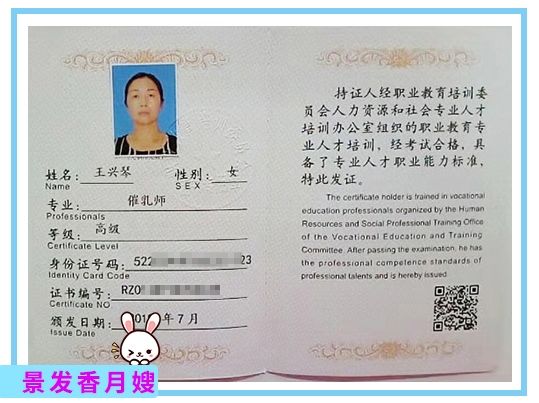 姓名: 王兴琴 性别: 女
Name SEX
专业: 催乳师
Professionals
等级: 高级
Certificate Level
身份证号码: 522 23
Identity Card Code
证书编号: RZ0
Certificate NO
颁发日期: 201 年7月
Issue Date
持证人经职业教育培训委
员会人力资源和社会专业人才
培训办公室组织的职业教育专
业人才培训,经考试合格,具
备了专业人才职业能力标准,
特此发证。
The certificate holder is trained in vocational
education professionals organized by the Human
Resources and Social Professional Training Office
of the Vocational Education and Training
Committee. After passing the examination, he has
the professional competence standards of
professional talents and is hereby issued.
景发香月嫂